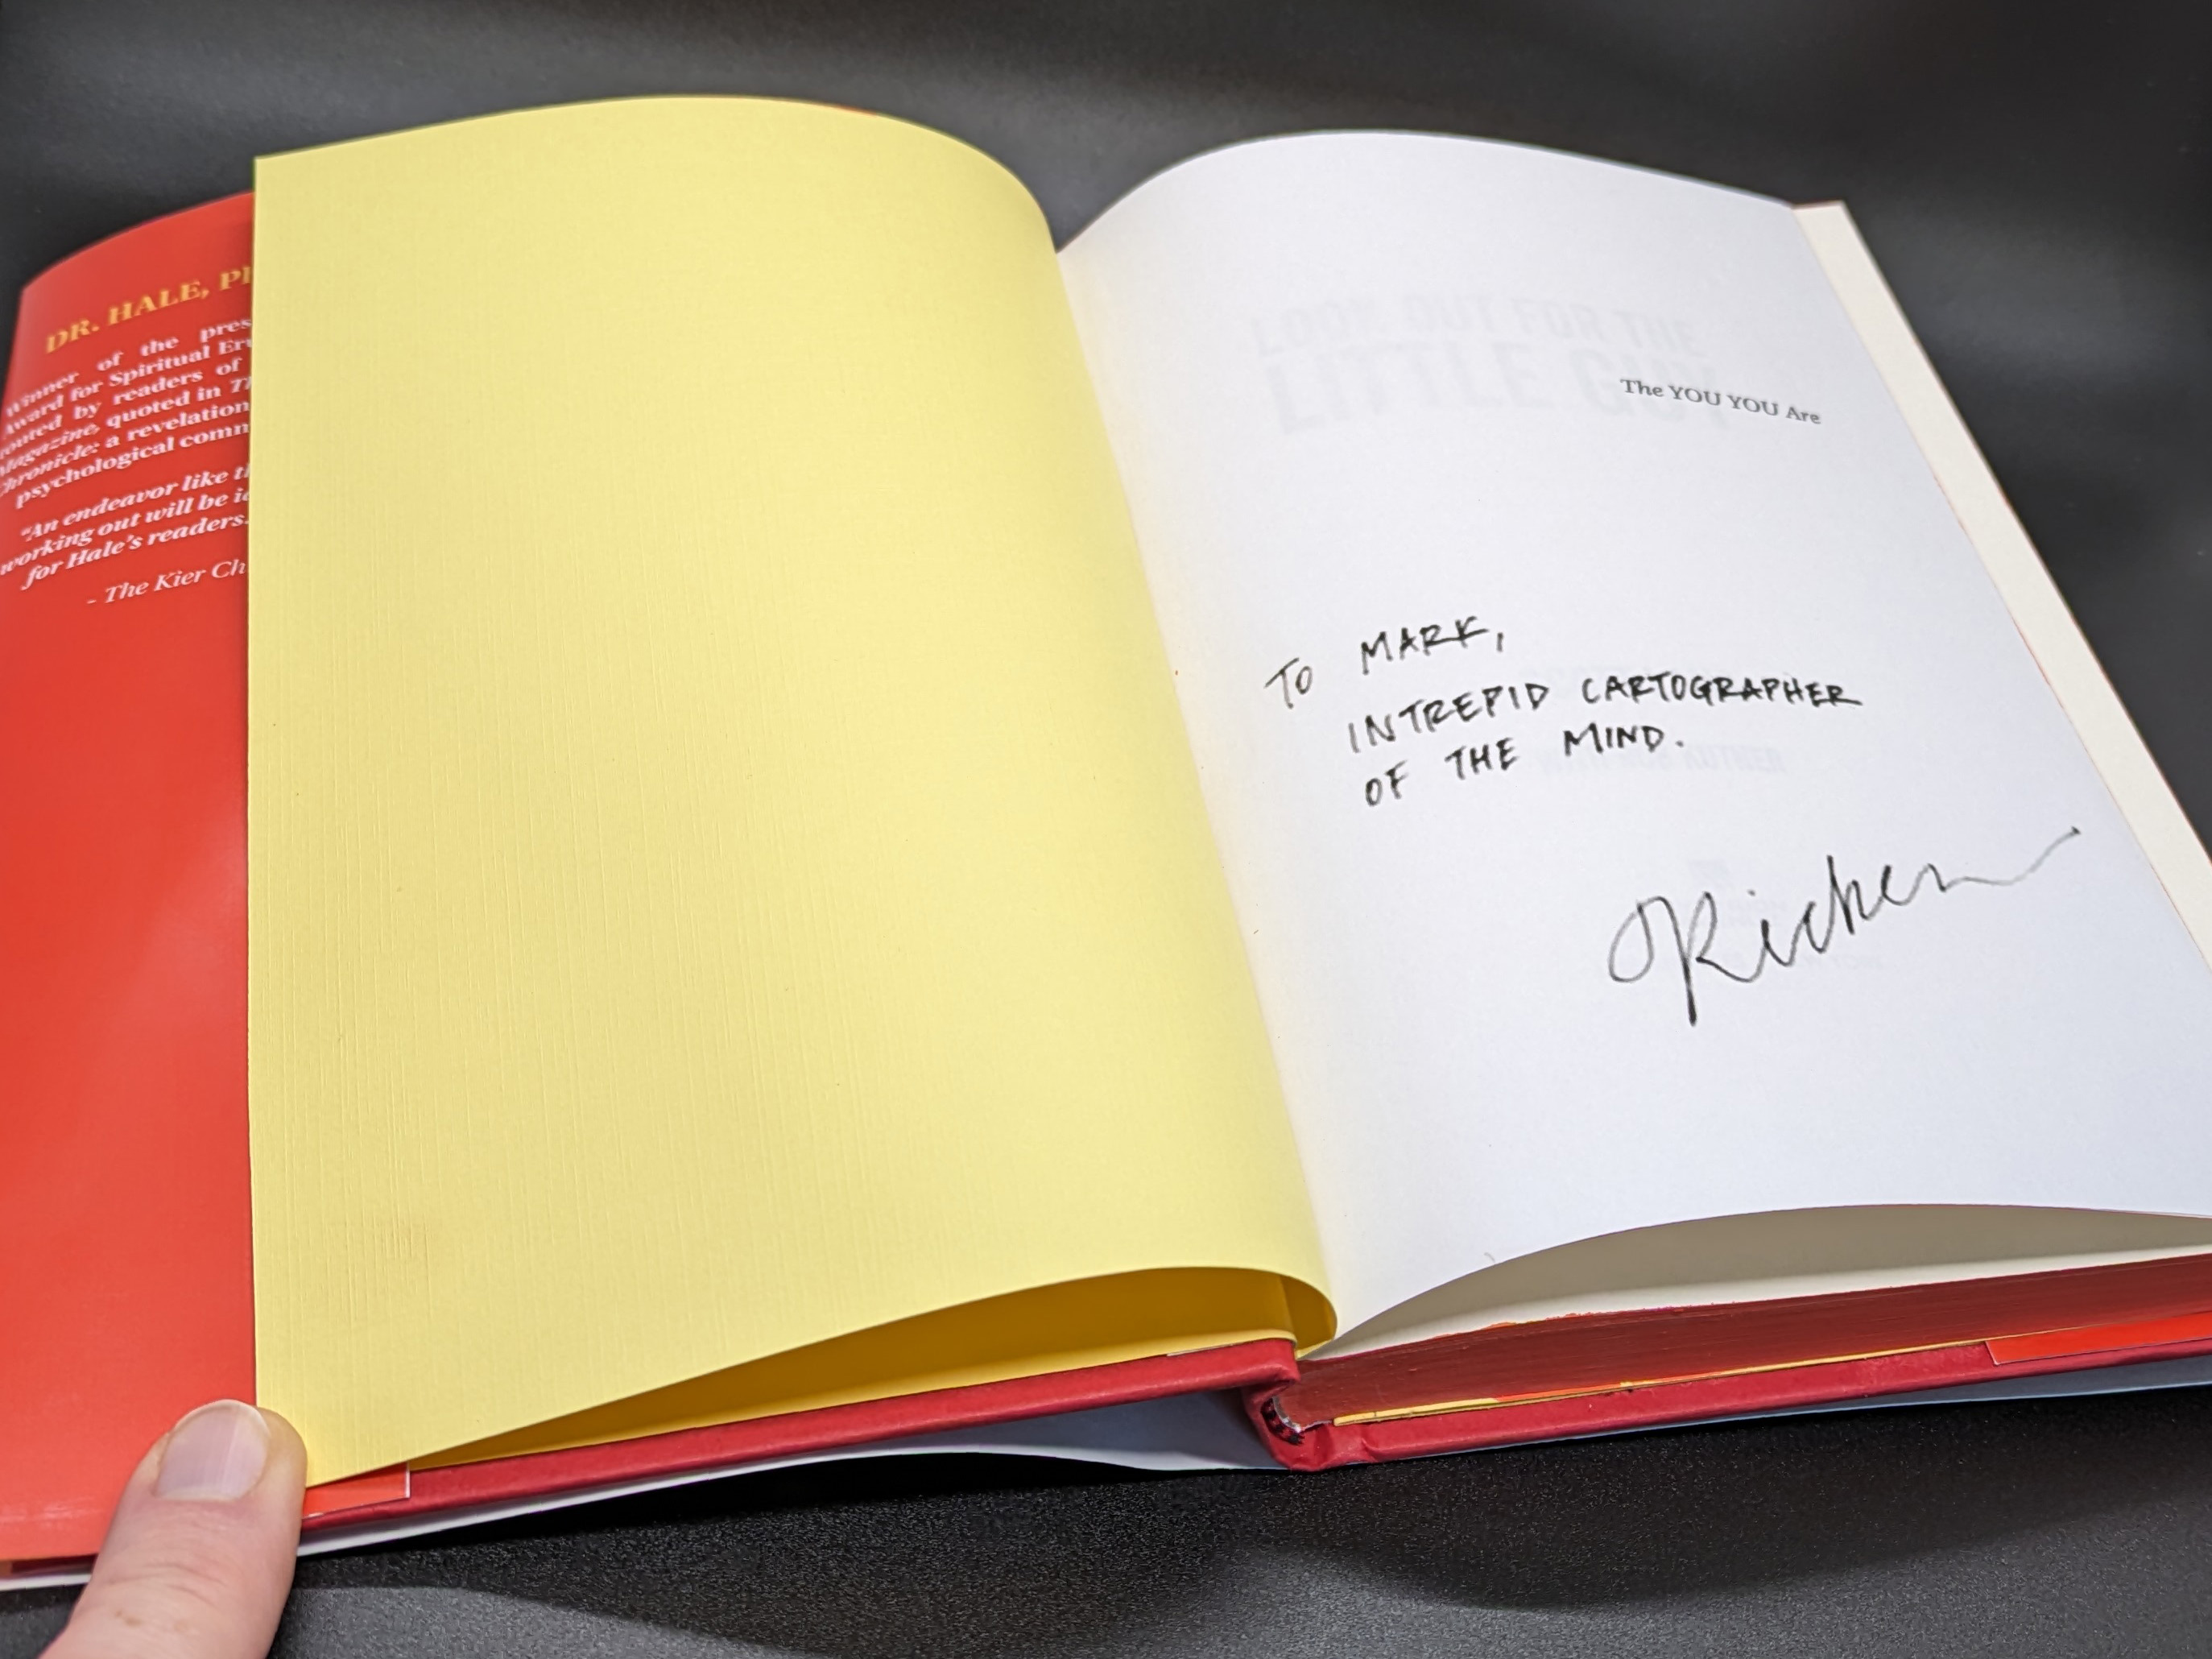 DR. HALE,
Winner of the
Award for Spiritual
touted by readers of
Magazine, quoted in
Chronicle: a revelation
psychological
"An endeavor like
working out will be
for Hale's readers.
- The Kier
LOOK OUT FOR THE
LITTLE GUY
The YOU YOU Are
TO MARK,
INTREPID CARTOGRAPHER
OF THE MIND.
Ricken